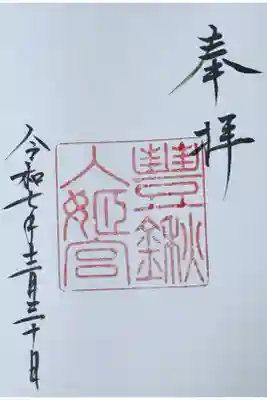 奉拝
豐鍬
入姫宮
令和七年十二月三十日